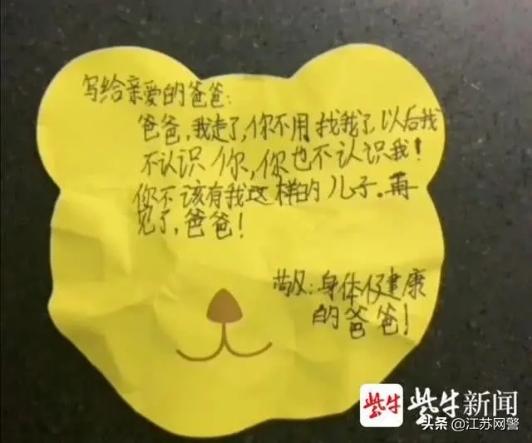 写给亲爱的爸爸:
爸爸,我走了,你不用找我了,以后我
不认识你,你也不认识我!
你不该有我这样的儿子.再
见了,爸爸!
:身体健康
的爸爸!
紫牛 紫牛新闻
头条 @江苏网警